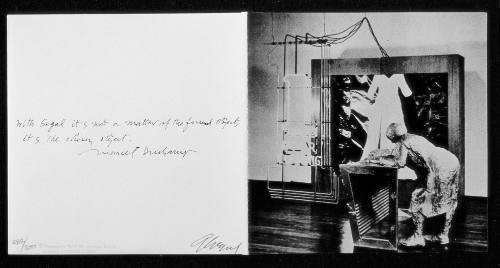 With Segal it is not a matter of the found object;
it is the chosen object.
Marcel Duchamp
G Segal